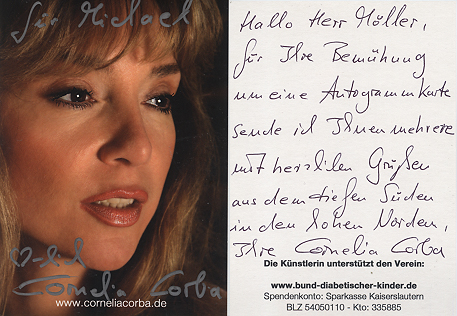 für Michael
♡-lich
Cornelia Corba
www.corneliacorba.de
Hallo Herr Möller,
für Ihre Bemühung
um eine Autogrammkarte
sende ich Ihnen mehrere
mit herzlichen Grüßen
aus dem tiefen Süden
in den hohen Norden,
Ihre Cornelia Corba
Die Künstlerin unterstützt den Verein:
www.bund-diabetischer-kinder.de
Spendenkonto: Sparkasse Kaiserslautern
BLZ 54050110 - Kto: 335885